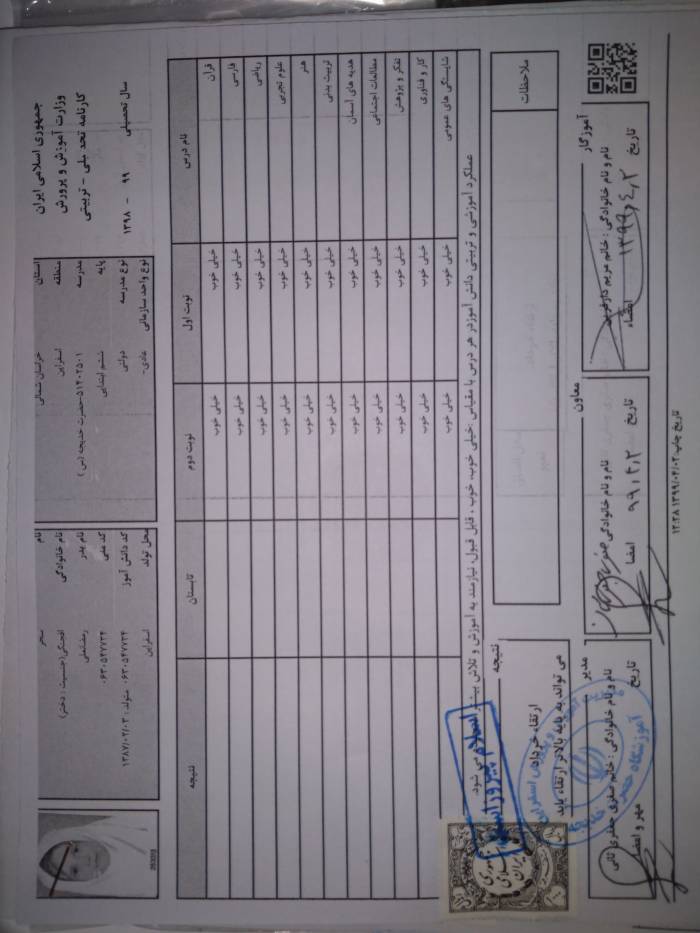 جمهوری اسلامی ایران
وزارت آموزش و پرورش
کارنامه تحصیلی - تربیتی
سال تحصیلی ۹۹ - ۱۳۹۸
استان خراسان شمالی
منطقه اسفراین
مدرسه ۵۱۴۰۲۵۰۱-حضرت خدیجه (س)
پایه ششم ابتدایی
نوع مدرسه دولتی
نوع واحد سازمانی عادی-
نام سحر
نام خانوادگی (جنسیت : دختر)
نام پدر رمضانعلی
کد ملی ۰۶۳۰۵۴۷۷۳۴
کد دانش آموز ۰۶۳۰۵۴۷۷۳۴ متولد: ۱۳۸۷/۰۲/۰۳
محل تولد اسفراین
نام درس نوبت اول نوبت دوم تابستان نتیجه
قرآن خیلی خوب خیلی خوب
فارسی خیلی خوب خیلی خوب
ریاضی خیلی خوب خیلی خوب
علوم تجربی خیلی خوب خیلی خوب
هنر خیلی خوب خیلی خوب
تربیت بدنی خیلی خوب خیلی خوب
هدیه های آسمان خیلی خوب خیلی خوب
مطالعات اجتماعی خیلی خوب خیلی خوب
تفکر و پژوهش خیلی خوب خیلی خوب
کار و فناوری خیلی خوب خیلی خوب
شایستگی های عمومی خیلی خوب خیلی خوب
عملکرد آموزشی و تربیتی دانش آموز در هر درس با مقیاس :خیلی خوب، خوب ، قابل قبول، نیازمند به آموزش و تلاش بیشتر می شود.
اسلام پیروز است
ملاحظات
نتیجه
ارتقاء خرداد
می تواند به پایه بالاتر ارتقاء یابد
آموزگار
نام و نام خانوادگی : خانم مریم
تاریخ ۱۳۹۹٫۴٫۲ امضاء
معاون
نام و نام خانوادگی
تاریخ ۹۹٫۴٫۲ امضا
مدیر
نام و نام خانوادگی : خانم صغری جعفری ثانی
تاریخ مهر و امضاء
تاریخ چاپ:۱۳۹۹/۰۴/۰۲ ۱۲:۲۸